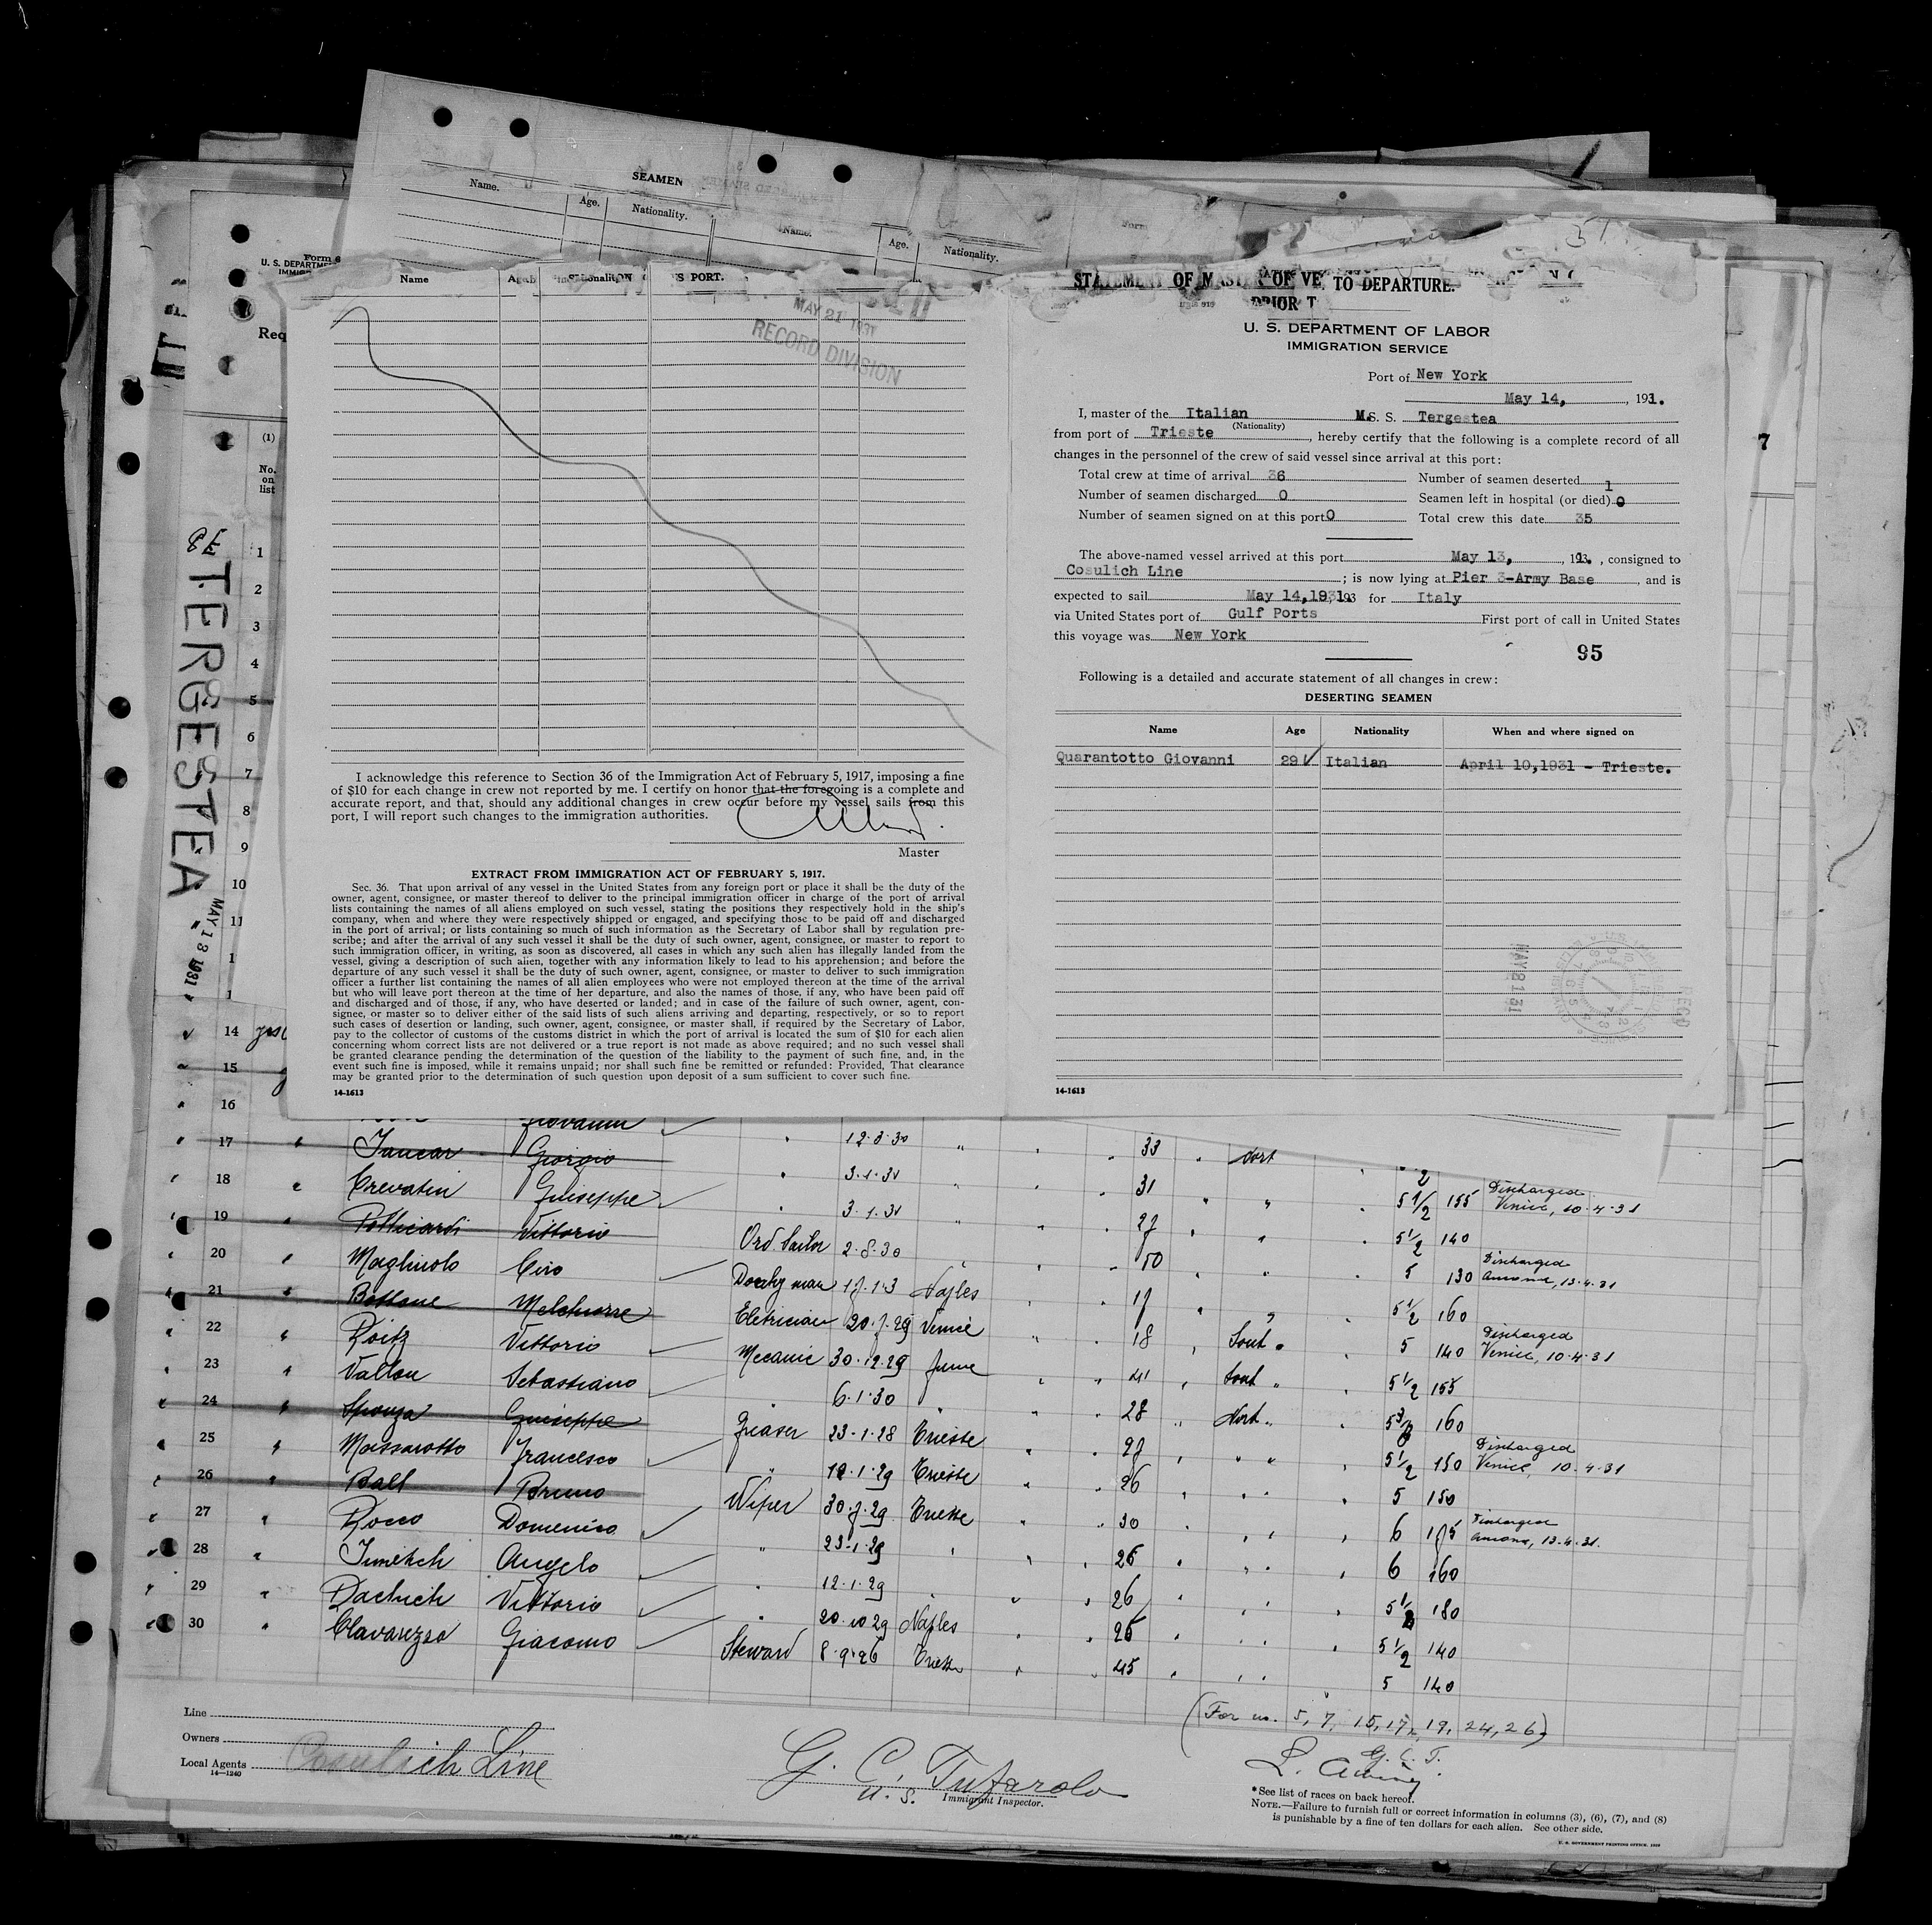 SEAMEN
Name. Age. Nationality. Name. Age. Nationality.
Form 6
U. S. DEPARTME
IMMIG
Req
(1)
No.
on
list
TERGESTEA
MAY 18 1931
7
Name
S PORT.
MAY 21 1931
RECORD DIVISION
I acknowledge this reference to Section 36 of the Immigration Act of February 5, 1917, imposing a fine
of $10 for each change in crew not reported by me. I certify on honor that the foregoing is a complete and
accurate report, and that, should any additional changes in crew occur before my vessel sails from this
port, I will report such changes to the immigration authorities.
Master
EXTRACT FROM IMMIGRATION ACT OF FEBRUARY 5, 1917.
Sec. 36. That upon arrival of any vessel in the United States from any foreign port or place it shall be the duty of the
owner, agent, consignee, or master thereof to deliver to the principal immigration officer in charge of the port of arrival
lists containing the names of all aliens employed on such vessel, stating the positions they respectively hold in the ship's
company, when and where they were respectively shipped or engaged, and specifying those to be paid off and discharged
in the port of arrival; or lists containing so much of such information as the Secretary of Labor shall by regulation pre-
scribe; and after the arrival of any such vessel it shall be the duty of such owner, agent, consignee, or master to report to
such immigration officer, in writing, as soon as discovered, all cases in which any such alien has illegally landed from the
vessel, giving a description of such alien, together with any information likely to lead to his apprehension; and before the
departure of any such vessel it shall be the duty of such owner, agent, consignee, or master to deliver to such immigration
officer a further list containing the names of all alien employees who were not employed thereon at the time of the arrival
but who will leave port thereon at the time of her departure, and also the names of those, if any, who have been paid off
and discharged and of those, if any, who have deserted or landed; and in case of the failure of such owner, agent, con-
signee, or master so to deliver either of the said lists of such aliens arriving and departing, respectively, or so to report
such cases of desertion or landing, such owner, agent, consignee, or master shall, if required by the Secretary of Labor,
pay to the collector of customs of the customs district in which the port of arrival is located the sum of $10 for each alien
concerning whom correct lists are not delivered or a true report is not made as above required; and no such vessel shall
be granted clearance pending the determination of the question of the liability to the payment of such fine, and, in the
event such fine is imposed, while it remains unpaid; nor shall such fine be remitted or refunded: Provided, That clearance
may be granted prior to the determination of such question upon deposit of a sum sufficient to cover such fine.
14-1613
STATEMENT OF MASTER OF VE TO DEPARTURE.
PRIOR T
U. S. DEPARTMENT OF LABOR
IMMIGRATION SERVICE
Port of New York
May 14, , 191.
I, master of the Italian M.S. S. Tergestea
(Nationality)
from port of Trieste , hereby certify that the following is a complete record of all
changes in the personnel of the crew of said vessel since arrival at this port:
Total crew at time of arrival 36 Number of seamen deserted 1
Number of seamen discharged 0 Seamen left in hospital (or died) 0
Number of seamen signed on at this port 0 Total crew this date 35
The above-named vessel arrived at this port May 13, , 193. , consigned to
Cosulich Line ; is now lying at Pier 3-Army Base , and is
expected to sail May 14,1931, 193 for Italy
via United States port of Gulf Ports First port of call in United States
this voyage was New York
95
Following is a detailed and accurate statement of all changes in crew:
DESERTING SEAMEN
Name Age Nationality When and where signed on
Quarantotto Giovanni 29 Italian April 10,1931 - Trieste.
MAY 21 31
RECD
14-1613
1
2
3
4
5
6
7
8
9
10
11
1
1
14
15
16 Giovanni
17 Giorgio 12.3.30 33 Nort
18 Crevatin Giuseppe 3.1.31 31 5 1/2 155 Discharged Venice, 10-4-31
19 Vittorio 3.1.31 27 5 1/2 140
20 Magliulo Ciro Ord. Sailor 2.8.30 50 5 130 Discharged Ancona, 13-4-31
21 Bottone Melchiorre Donkeyman 17.1.3 Naples 17 5 1/2 160
22 Roitz Vittorio Eletrician 20.7.29 Venice 18 Sout 5 140 Discharged Venice, 10-4-31
23 Vallon Sebastiano Mecanic 30.12.29 Fiume 41 Sout 5 1/2 155
24 Sponza Giuseppe 6.1.30 28 Nort 160
25 Massarotto Francesco Greaser 23.1.28 Trieste 27 5 1/2 150 Discharged Venice, 10-4-31
26 Ball Bruno 12.1.29 Trieste 26 5 150
27 Rocco Domenico Wiper 30.7.29 Trieste 30 6 175 Discharged Ancona, 13-4-31.
28 Angelo 23-1-29 26 6 160
29 Vittorio 12.1.29 26 5 1/2 180
30 Giacomo 20.10 29 Naples 26 5 1/2 140
Steward 8.9.26 Trieste 45 5 140
(For no. 5, 7, 15, 17, 19, 24, 26)
G. C. T.
Line
Owners
Local Agents Cosulich Line
14—1240
G. C. Tufarolo
U. S. Immigrant Inspector.
*See list of races on back hereof.
NOTE.—Failure to furnish full or correct information in columns (3), (6), (7), and (8)
is punishable by a fine of ten dollars for each alien. See other side.
U. S. GOVERNMENT PRINTING OFFICE